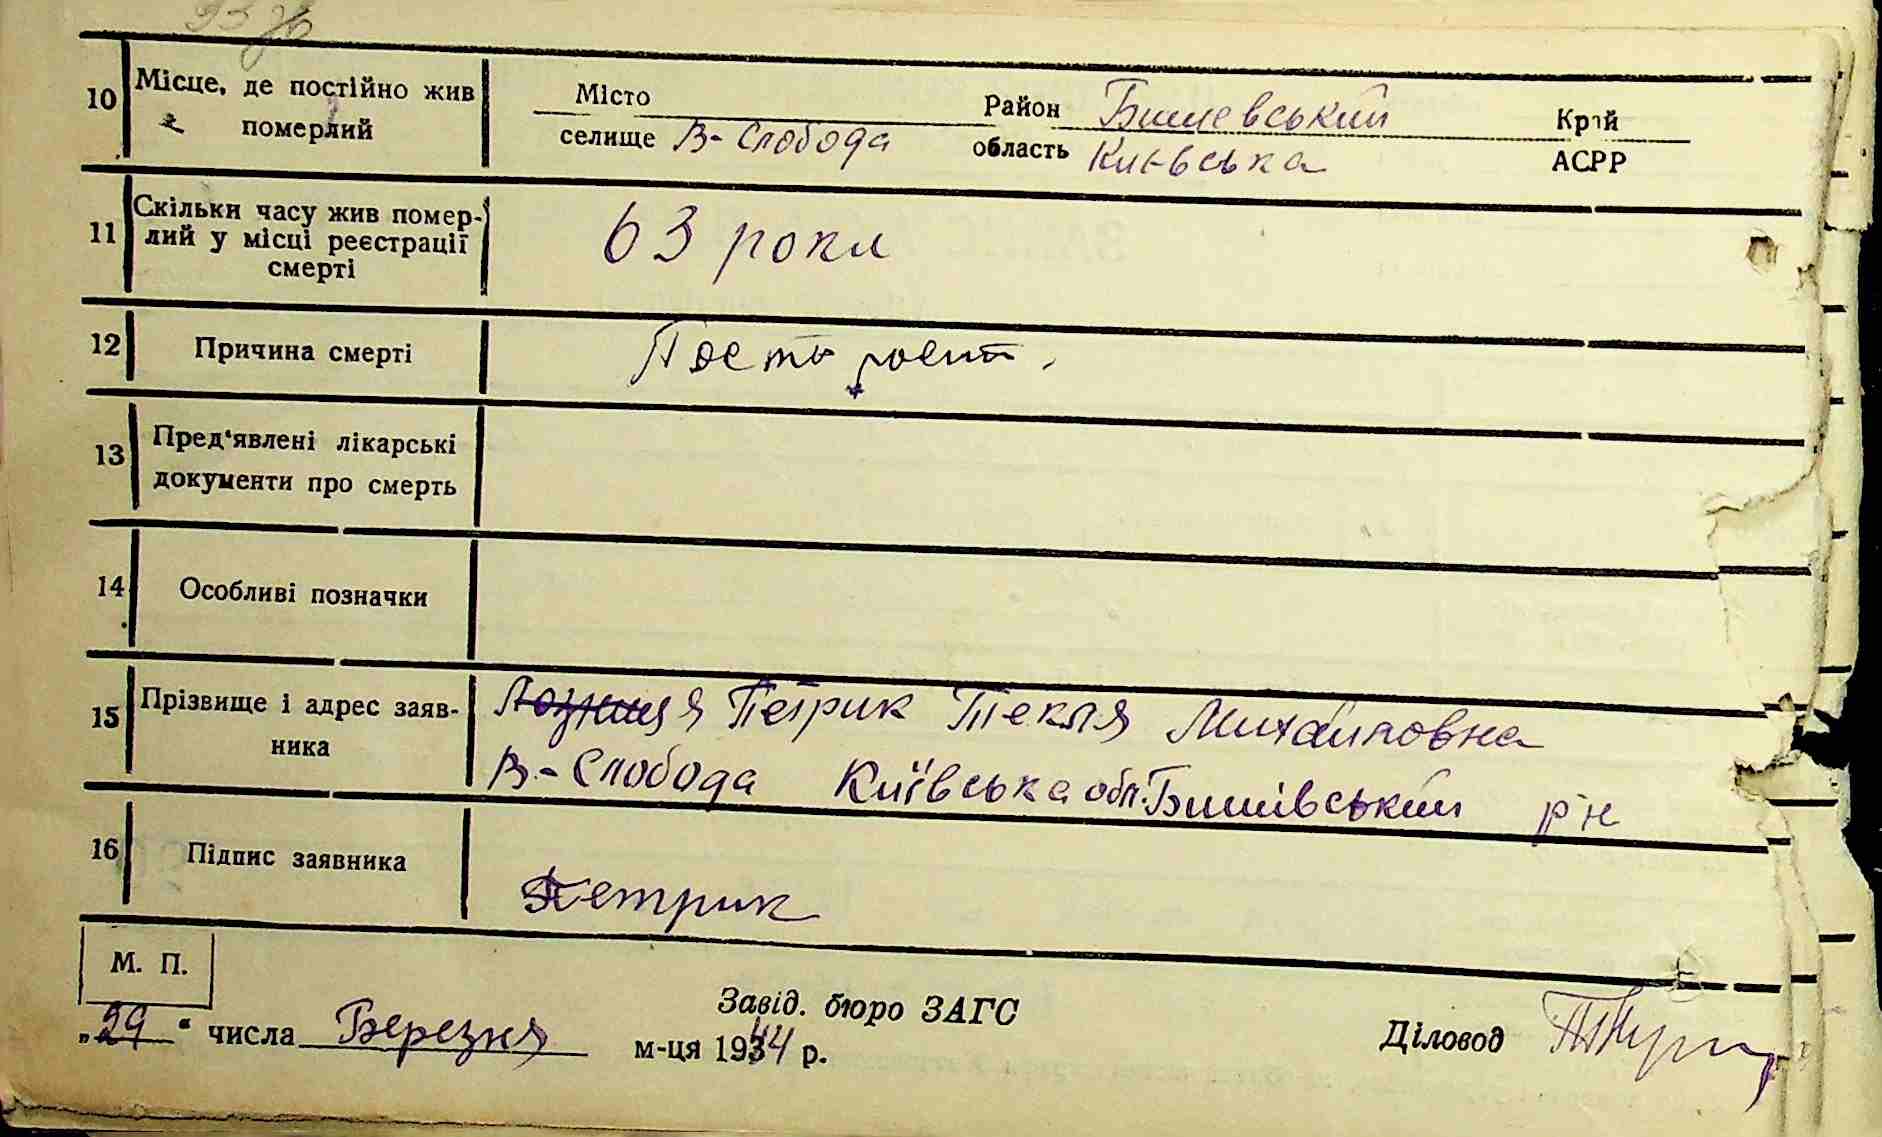 10 Місце, де постійно жив
померлий
Місто
селище В-Слобода
Район Бишевський
область Київська
Край
АСРР
11 Скільки часу жив помер-
лий у місці реєстрації
смерті
63 роки
12 Причина смерті
13 Пред'явлені лікарські
документи про смерть
14 Особливі позначки
15 Прізвище і адрес заяв-
ника
Петрик Текля Михайловна
В-Слобода Київська обл. Бишівський р-н
16 Підпис заявника
Петрик
М. П.
„29“ числа Березня м-ця 1944 р.
Завід. бюро ЗАГС
Діловод